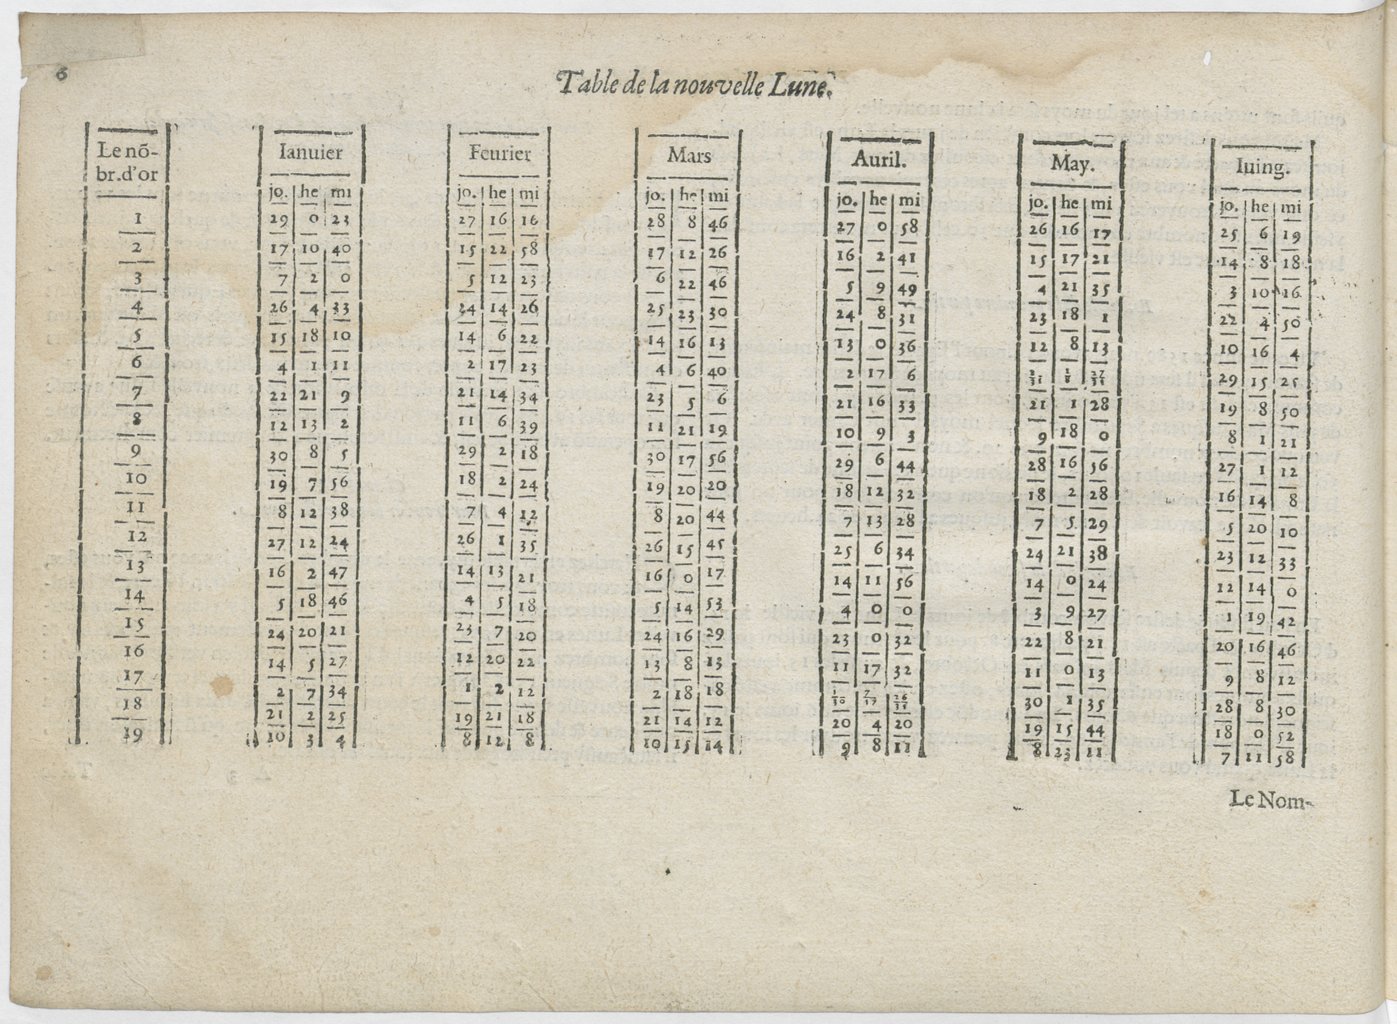 6
Table de la nouvelle Lune.
Le nō- Ianuier Feurier Mars Auril. May. Iuing.
br.d'or
jo. he mi jo. he mi jo. he mi jo. he mi jo. he mi jo. he mi
1 29 0 23 27 16 16 28 8 46 27 0 58 26 16 17 25 6 19
2 17 10 40 15 22 58 17 12 26 16 2 41 15 17 21 14 8 18
3 7 2 0 5 12 23 6 22 46 5 9 49 4 21 35 3 10 16
4 26 4 33 24 14 26 25 23 30 24 8 31 23 18 1 22 4 50
5 15 18 10 14 6 22 14 16 13 13 0 36 12 8 13 10 16 4
6 4 1 11 2 17 23 4 6 40 2 17 6 29 15 25
7 22 21 9 21 14 34 23 5 6 21 16 33 21 1 28 19 8 50
8 12 13 2 11 6 39 11 21 19 10 9 3 9 18 0 8 1 21
9 30 8 5 29 2 18 30 17 56 29 6 44 28 16 56 27 1 12
10 19 7 56 18 2 24 19 20 20 18 12 32 18 2 28 16 14 8
11 8 12 38 7 4 12 8 20 44 7 13 28 7 5 29 5 20 10
12 27 12 24 26 1 35 26 15 45 25 6 34 24 21 38 23 12 33
13 16 2 47 14 13 21 16 0 17 14 11 56 14 0 24 12 14 0
14 5 18 46 4 5 18 5 14 53 4 0 0 3 9 27 1 19 42
15 24 20 21 23 7 20 24 16 29 23 0 32 22 8 21 20 16 46
16 14 5 27 12 20 22 13 8 13 11 17 32 11 0 13 9 8 12
17 2 7 34 1 2 12 2 18 18 30 1 35 28 8 30
18 21 2 25 19 21 18 21 14 12 20 4 20 19 15 44 18 0 52
19 10 3 4 8 12 8 10 15 14 9 8 11 8 23 11 7 11 58
Le Nom-